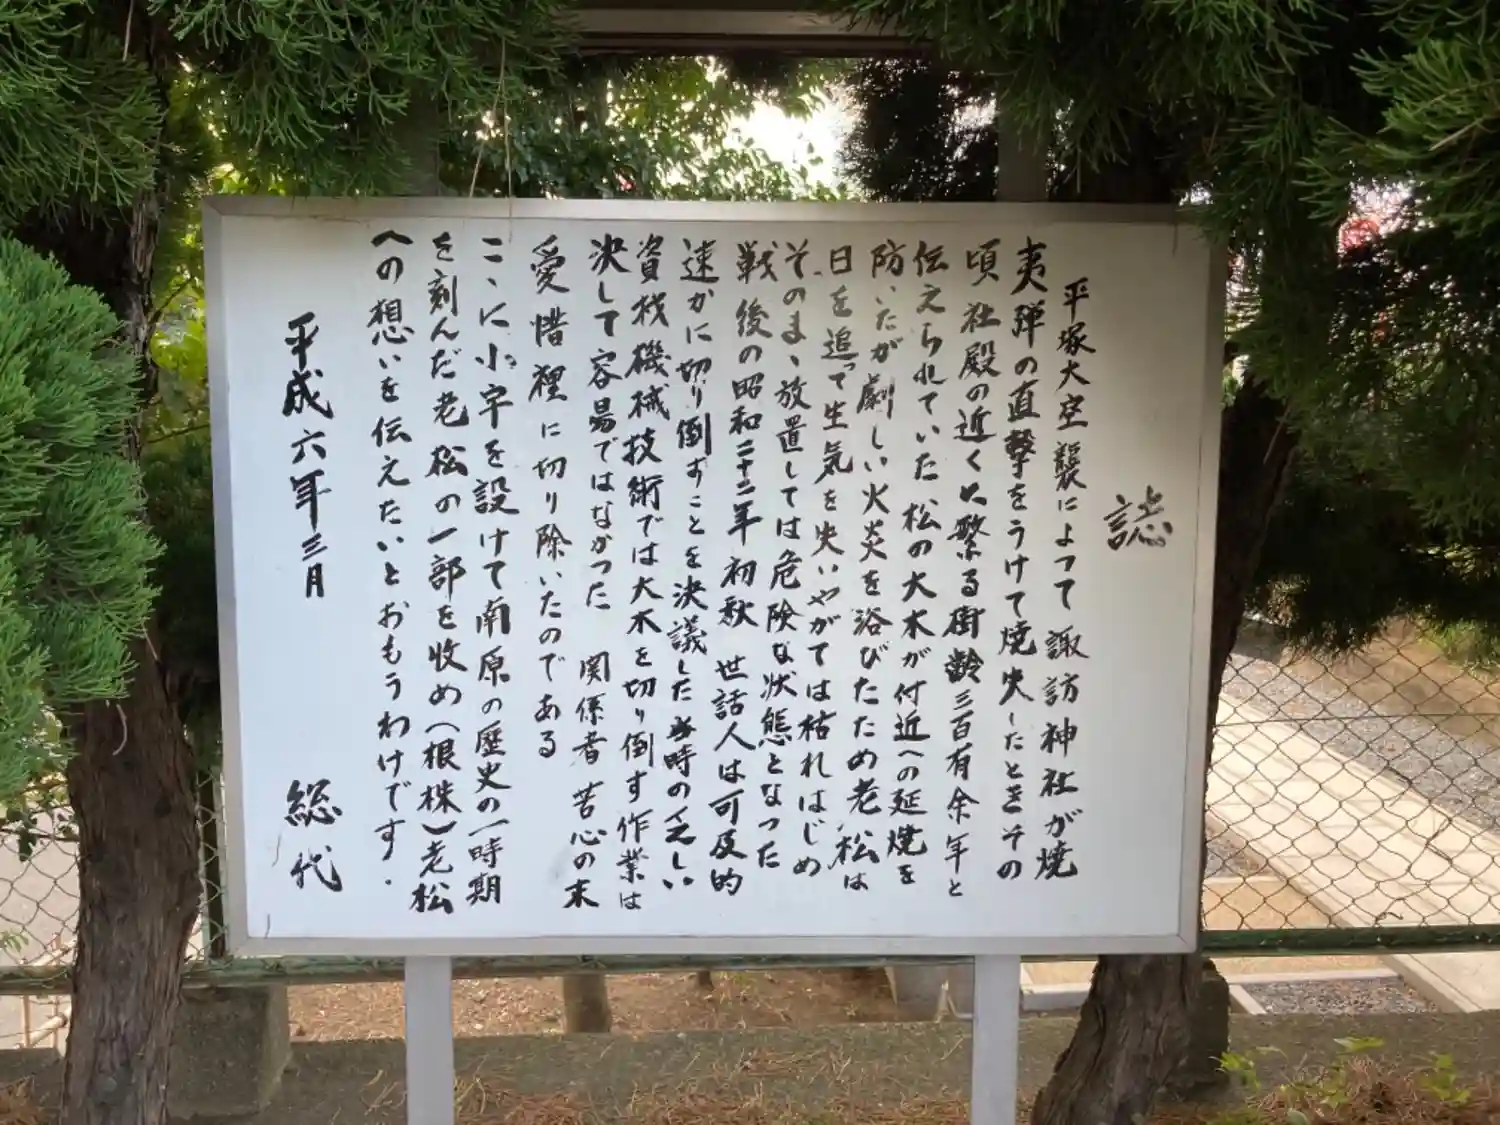 誌
平塚大空襲によって諏訪神社が焼
夷弾の直撃をうけて焼失したときその
頃社殿の近くに繁る樹齢三百有余年と
伝えられていた松の大木が付近への延焼を
防いだが劇しい火炎を浴びたため老松は
日を追って生気を失いやがては枯れはじめ
そのまゝ放置しては危険な状態となった
戦後の昭和二十二年初秋 世話人は可及的
速かに切り倒すことを決議した当時の乏しい
資材機械技術では大木を切り倒す作業は
決して容易ではなかった 関係者苦心の末
愛惜裡に切り除いたのである
こゝに小宇を設けて南原の歴史の一時期
を刻んだ老松の一部を收め(根株)老松
への想いを伝えたいとおもうわけです.
平成六年三月 総代